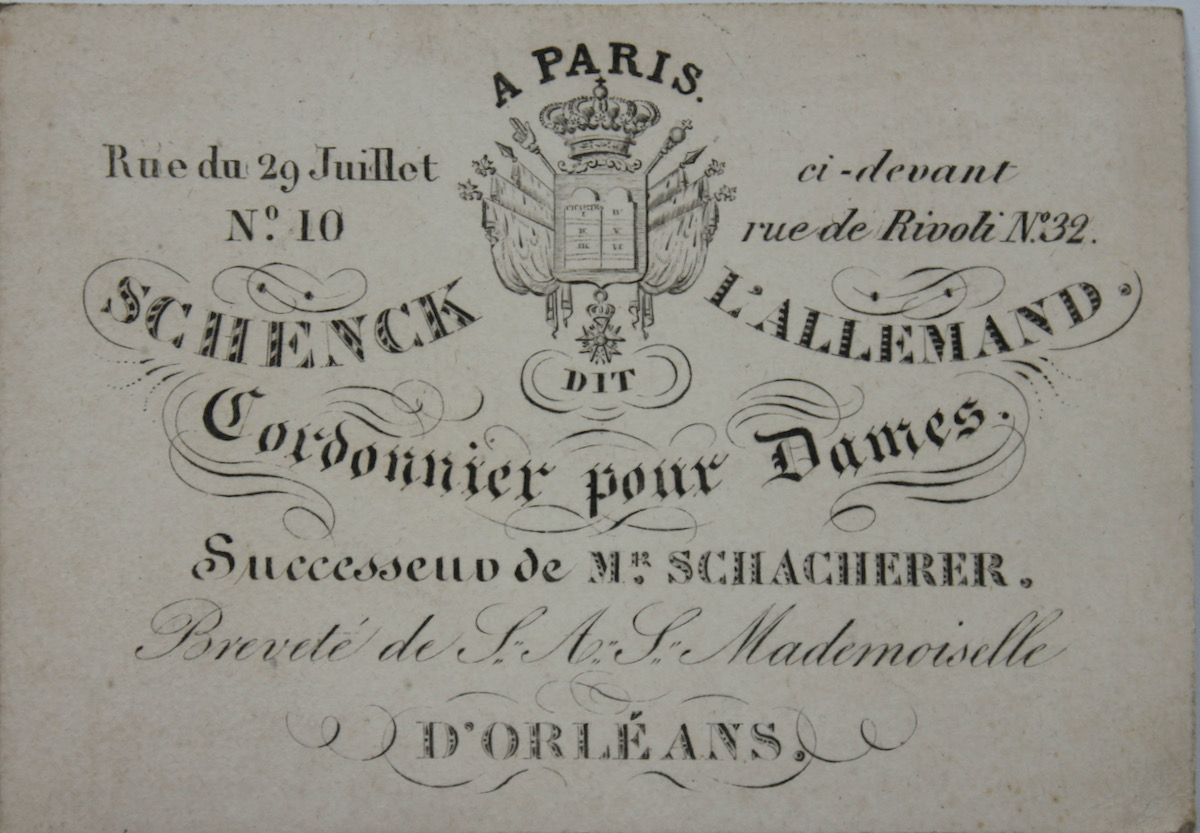 A PARIS.
Rue du 29 Juillet
N.º 10
ci-devant
rue de Rivoli Nº.32.
CHARTE
SCHENCK
DIT
L'ALLEMAND.
Cordonnier pour Dames.
Successeur de MR. SCHACHERER.
Breveté de S. A. S. Mademoiselle
D'ORLÉANS.